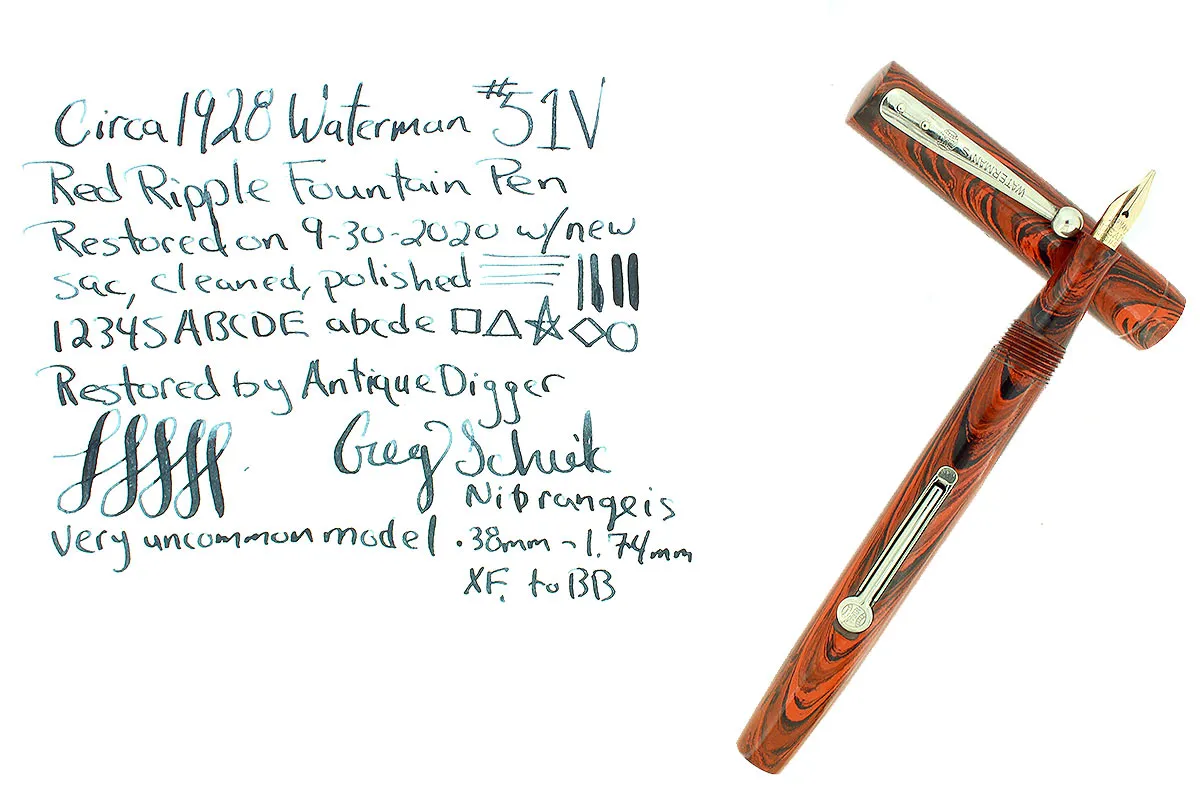 Circa 1928 Waterman #51V
Red Ripple Fountain Pen
Restored on 9-30-2020 w/new
sac, cleaned, polished
12345 ABCDE abcde
Restored by AntiqueDigger
Greg Schiek
Nib range is
very uncommon model .38mm - 1.74mm
XF. to BB
WATERMAN'S